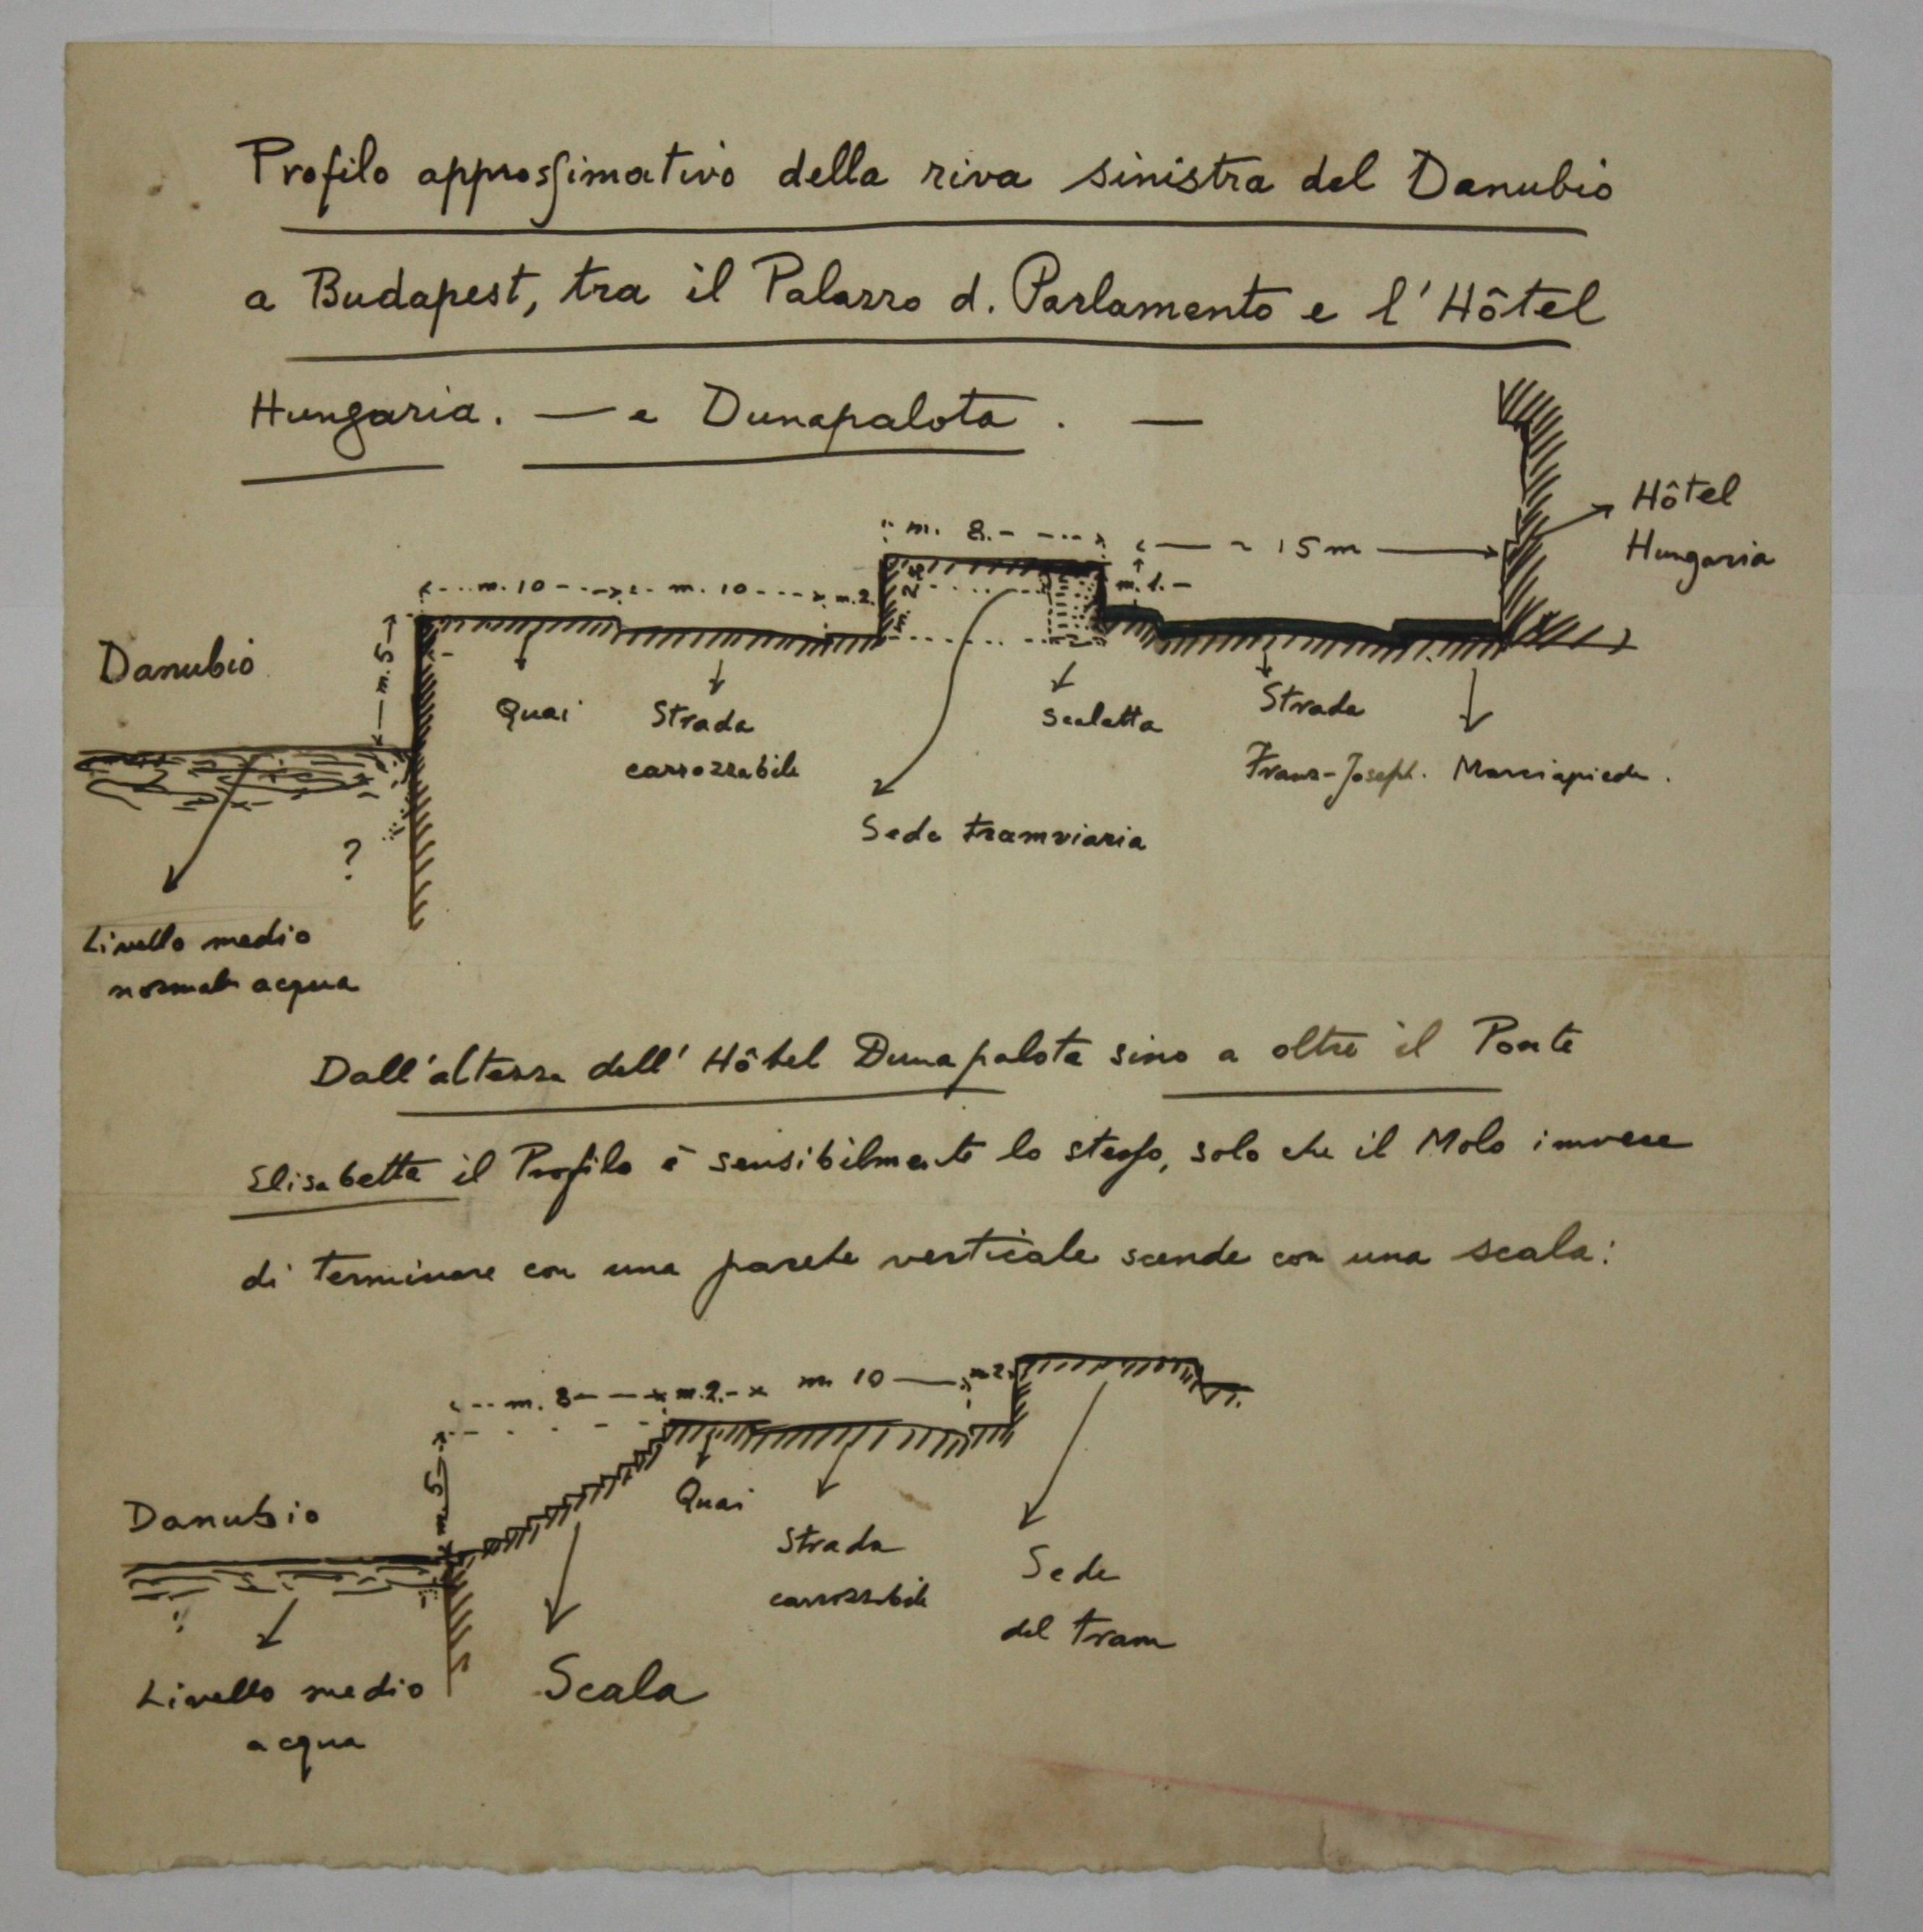 Profilo approssimativo della riva sinistra del Danubio
a Budapest, tra il Palazzo d. Parlamento e l'Hôtel
Hungaria. — e Dunapalota. —
Hôtel
Hungaria
m. 8.-
~ 15 m
m. 10
m. 10
m. 2.
m. 1.-
m. 5
Danubio
Quai
Strada
carrozzabile
Scaletta
Strada
Franz-Joseph.
Marciapiede.
Sede tramviaria
?
Livello medio
normale acqua
Dall'altezza dell'Hôtel Dunapalota sino a oltre il Ponte
Elisabetta il Profilo è sensibilmente lo stesso, solo che il Molo invece
di terminare con una parete verticale scende con una scala:
m. 8
m. 2.
m. 10
m. 2.
m. 5
Danubio
Quai
Strada
carrozzabile
Sede
del tram
Livello medio
acqua
Scala